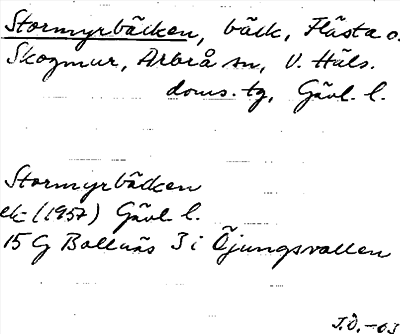 Stormyrbäcken, bäck, Flästa o.
Skogmur, Arbrå sn, V. Häls.
doms. tg, Gävl. l.
Stormyrbäcken
ek (1957) Gävl l.
15 G Bollnäs 3 i Öjungsvallen
J.Ö.-63